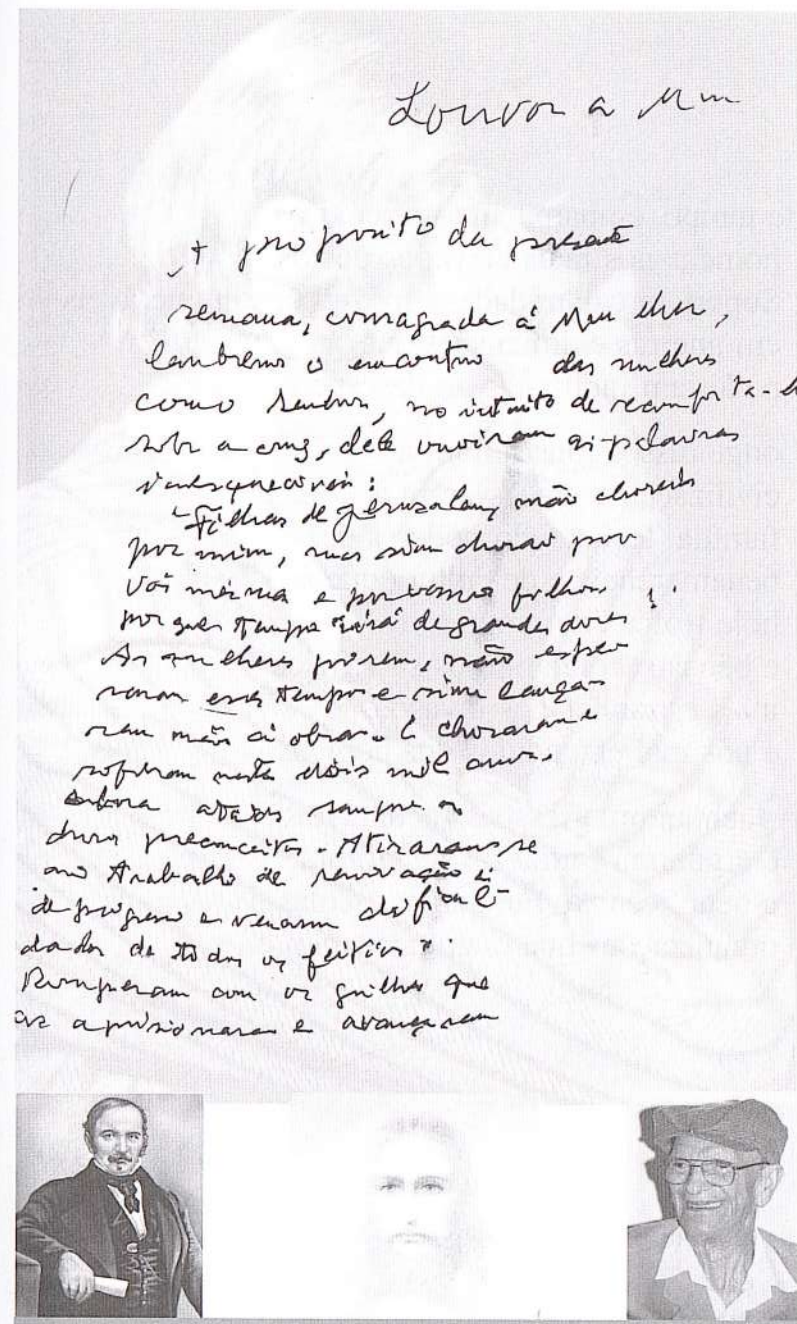 Louvor a
A proposito da presente
semana, consagrada á Mulher,
lembremos o encontro das mulheres
como Senhor, no intuito de
sobr a cruz, dele ouviram as palavras
inesqueciveis:
"Filhas de Jerusalem, não choreis
por mim, mas sim chorai por
vós mesmas e por vossos filhos
por que o tempo será de grandes dores!
As mulheres porem, não espe
raram esse tempo e sim lança
ram mãos á obra. E choraram e
sofreram nesta dois mil anos.
Embora atadas sempre a
duros preconceitos. Atiraram se
ao trabalho de renovação e
de progresso e venceram dificul
dades de todos os feitios.
Romperam com os grilhões que
as aprisionaram e avançaram